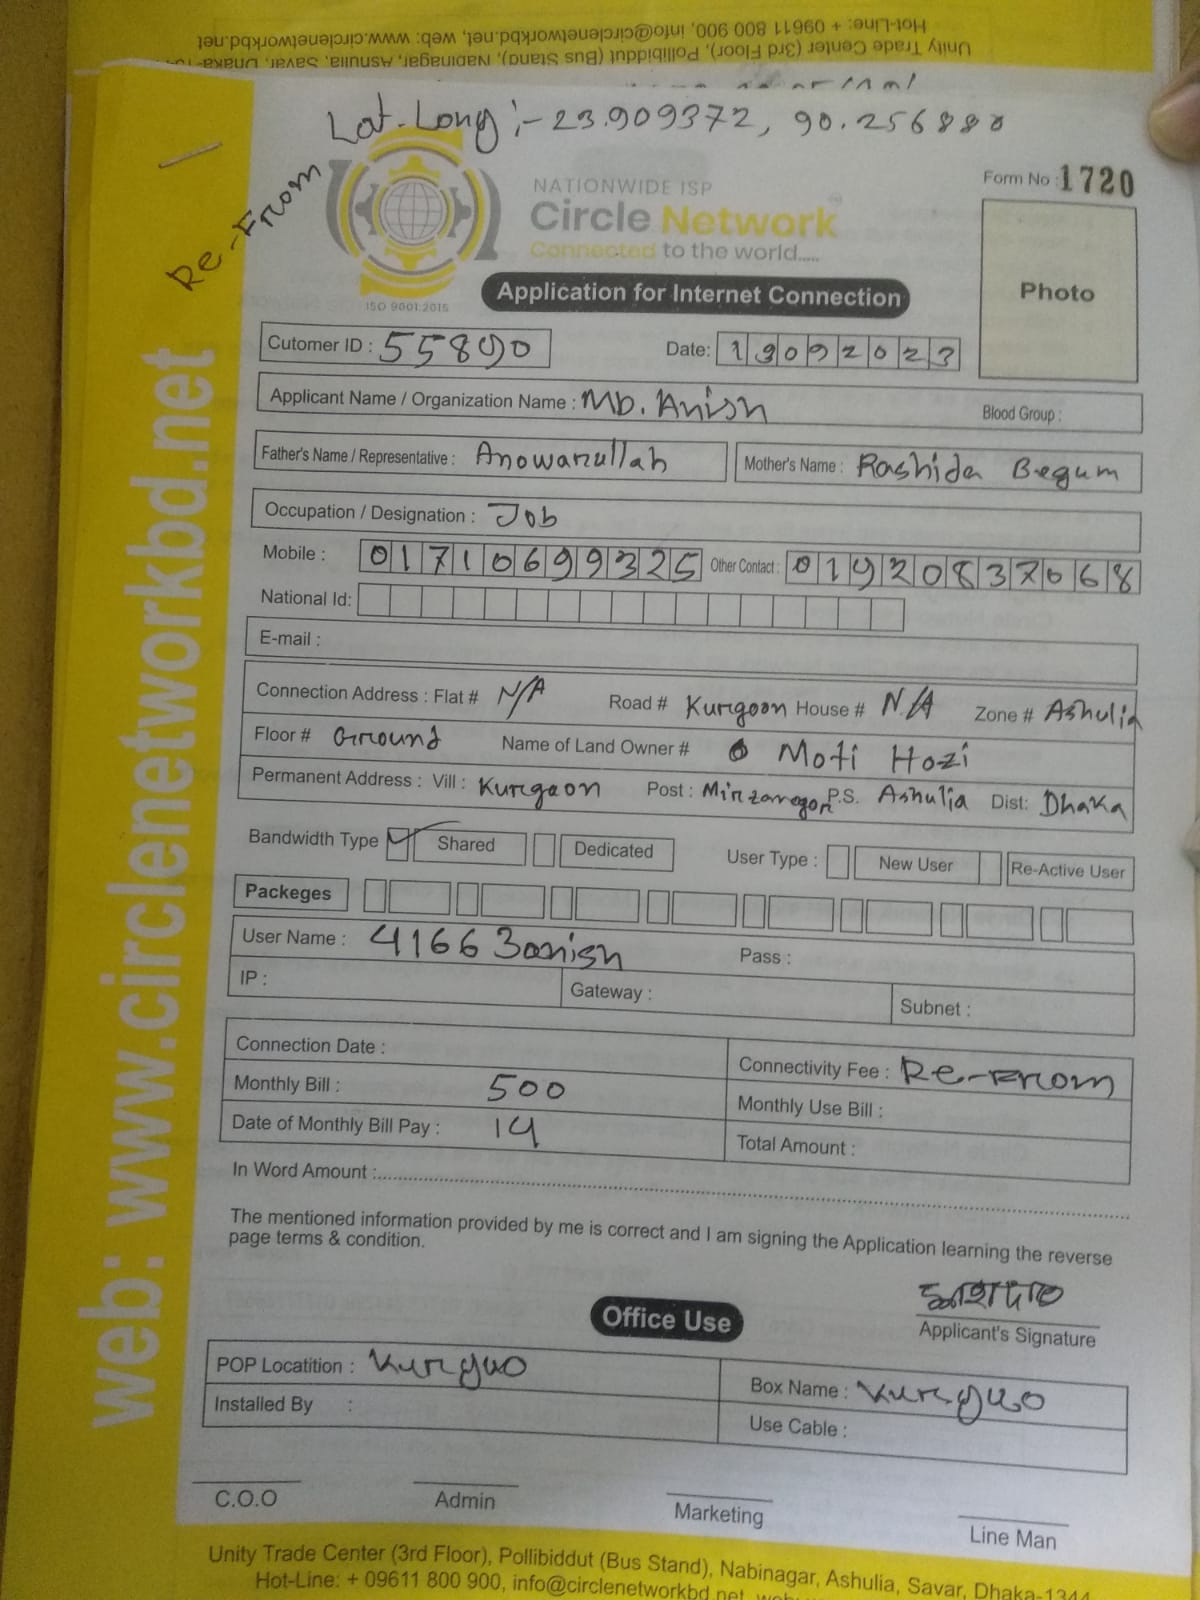 Hot-Line: + 09611 800 900, info@circlenetworkbd.net, web: www.circlenetworkbd.net
Unity Trade Center (3rd Floor), Pollibiddut (Bus Stand), Nabinagar, Ashulia, Savar, Dhaka-
Lat-Long :- 23.909372, 90.256880
Re-From
NATIONWIDE ISP
Circle Network
Connected to the world.....
ISO 9001:2015
Form No : 1720
Photo
Application for Internet Connection
Cutomer ID : 55890
Date: 19092023
Applicant Name / Organization Name : MD. Anish
Blood Group :
Father's Name / Representative : Anowarullah
Mother's Name : Rashida Begum
Occupation / Designation : Job
Mobile : 01710699325 Other Contact : 01920837068
National Id:
E-mail :
Connection Address : Flat # N/A Road # Kurgaon House # N/A Zone # Ashulia
Floor # Ground Name of Land Owner # Moti Hazi
Permanent Address : Vill : Kurgaon Post : Mirzanagar P.S. Ashulia Dist: Dhaka
Bandwidth Type Shared Dedicated User Type : New User Re-Active User
Packeges
User Name : 41663anish Pass :
IP : Gateway : Subnet :
Connection Date : Connectivity Fee : Re-From
Monthly Bill : 500 Monthly Use Bill :
Date of Monthly Bill Pay : 14 Total Amount :
In Word Amount :
The mentioned information provided by me is correct and I am signing the Application learning the reverse
page terms & condition.
Applicant's Signature
Office Use
POP Locatition : Box Name :
Installed By : Use Cable :
C.O.O Admin Marketing Line Man
Unity Trade Center (3rd Floor), Pollibiddut (Bus Stand), Nabinagar, Ashulia, Savar, Dhaka-1344
Hot-Line: + 09611 800 900, info@circlenetworkbd.net,
web: www.circlenetworkbd.net